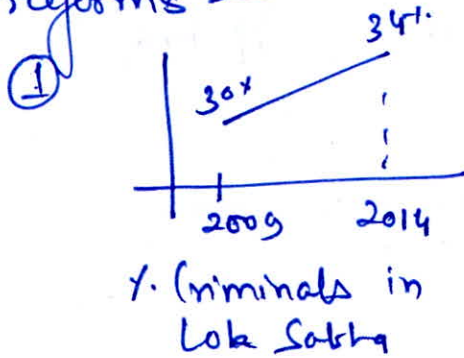 Reforms
①
34%
30%
2009 2014
% Criminals in
Lok Sabha